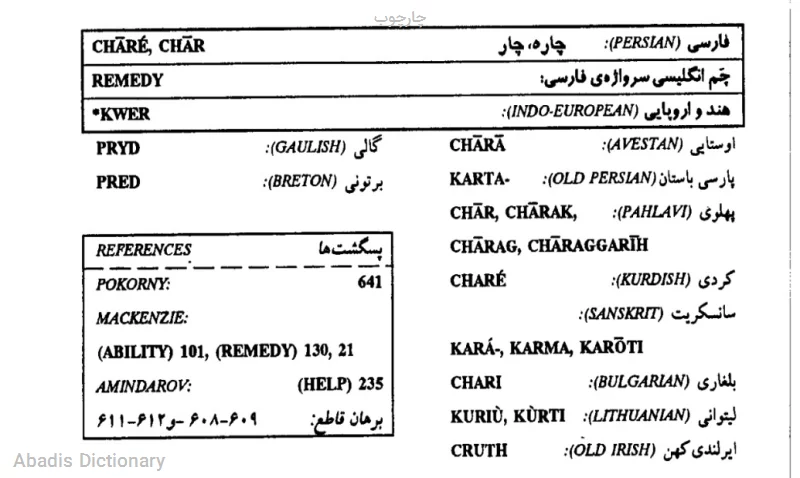 چارچوب
فارسی (PERSIAN): چاره، چار CHĀRÉ, CHĀR
چَم انگلیسی سرواژه‌ی فارسی: REMEDY
هند و اروپایی (INDO-EUROPEAN): *KWER
اوستایی (AVESTAN): CHĀRĀ
پارسی باستان (OLD PERSIAN): KARTA-
پهلوی (PAHLAVI): CHĀR, CHĀRAK,
CHĀRAG, CHĀRAGGARĪH
کردی (KURDISH): CHARÉ
سانسکریت (SANSKRIT):
KARÁ-, KARMA, KARŌTI
بلغاری (BULGARIAN): CHARI
لیتوانی (LITHUANIAN): KURIÙ, KÙRTI
ایرلندی کهن (OLD IRISH): CRUTH
گالی (GAULISH): PRYD
برتونی (BRETON): PRED
REFERENCES پسگشت‌ها
POKORNY: 641
MACKENZIE:
(ABILITY) 101, (REMEDY) 130, 21
AMINDAROV: (HELP) 235
برهان قاطع: ۶۰۹-۶۰۸ -و۶۱۲-۶۱۱
Abadis Dictionary